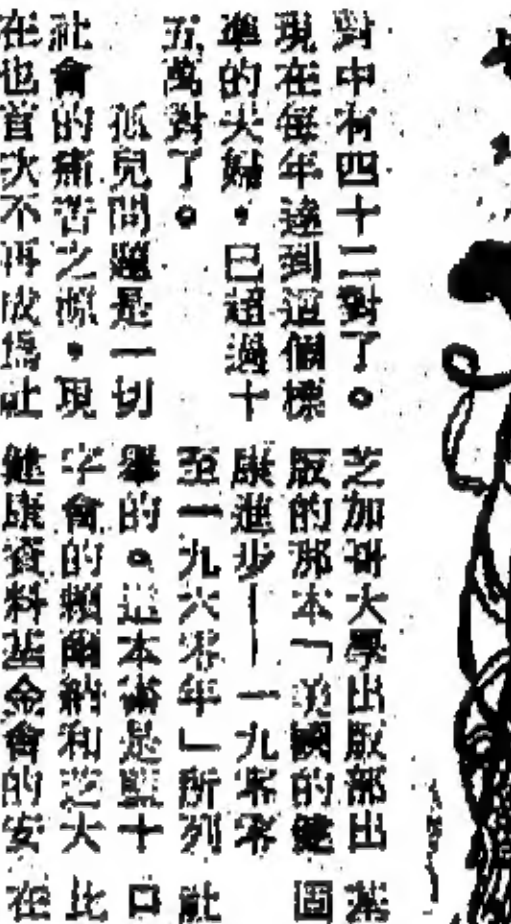 對中有四十二對了。
現在每年達到這個標
準的夫婦，已超過十
五萬對了。
孤兒問題是一切
社會的痛苦之源，現
在也首次不再成爲社
芝加哥大學出版部出
版的那本「美國的健
康進步——一九零零
至一九六零年」所列
舉的。這本書是紅十
字會的賴爾納和芝大
健康資料基金會的安
基
固
社
口
比
在